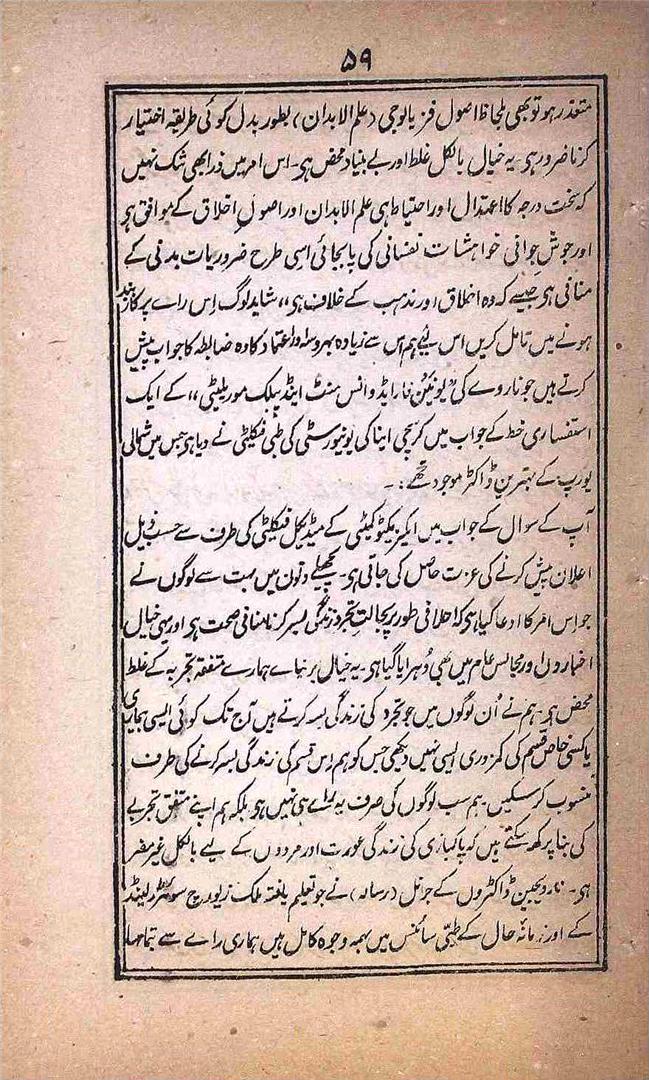 ۵۹
متعذر ہو تو بھی بلحاظ اصول فزیالوجی (علم الابدان) بطور بدل کوئی طریقہ اختیار
کرنا ضرور ہی۔ یہ خیال بالکل غلط اور بے بنیاد محض ہی۔ اس امر میں ذرا بھی شک نہیں
کہ سخت درجہ کا اعتدال اور احتیاط ہی علم الابدان اور اصول اخلاق کے موافق ہو
اور جوش جوانی خواہشات نفسانی کی پابجائی اسی طرح ضروریات بدنی کے
منافی ہی جیسے کہ وہ اخلاق اور مذہب کے خلاف ہی،، شاید لوگ اِس راے پر کاربند
ہونے میں تامل کریں اس لیے ہم اس سے زیادہ بھروسہ و اعتماد کا وہ ضابطہ کا جواب پیش
کرتے ہیں جو ناروے کی ”یونین فار ایڈوانس منٹ اینڈ پبلک موریلیٹی،، کے ایک
استفساری خط کے جواب میں کرسچی اینا کی یونیورسٹی کی طبی فیکلٹی نے دیا ہی جس میں شمالی
یورپ کے بہترین ڈاکٹر موجود تھے :۔
آپ کے سوال کے جواب میں اکیزیکیٹو کمیٹی کے میڈیکل فیکلٹی کی طرف سے حسب ذیل
اعلان پیش کرنے کی عزت حاصل کی جاتی ہی۔ پچھلے دنوں میں بہت سے لوگوں نے
جو اِس امر کا ادعا کیا ہی کہ اخلاقی طور پر بحالت تجرد زندگی بسر کرنا منافی صحت ہو اور یہی خیال
اخباروں اور مجالس عام میں بھی دُہرایا گیا ہی۔ یہ خیال بر بناے ہمارے متفقہ تجربہ کے غلط
محض ہو۔ ہم نے اُن لوگوں میں جو تجرد کی زندگی بسر کرتے ہیں آج تک کوئی ایسی بیماری
یا کسی خاص قسم کی کمزوری ایسی نہیں دیکھی جس کو ہم اِس قسم کی زندگی بسر کرنے کی طرف
منسوب کر سکیں۔ ہم سب لوگوں کی صرف یہ راے ہی نہیں ہو بلکہ ہم اپنے متفق تجربے
کی بنا پر کہہ سکتے ہیں کہ پاکبازی کی زندگی عورت اور مردوں کے لیے بالکل غیر مضر
ہی۔ نارویجین ڈاکٹروں کے جرنل (رسالہ) نے جو تعلیم یافتہ ملک زیورچ سوئٹزرلینڈ
کے اور زمانۂ حال کے طبّی سائنس میں بہمہ وجوہ کامل ہیں ہماری راے سے بتمامہا